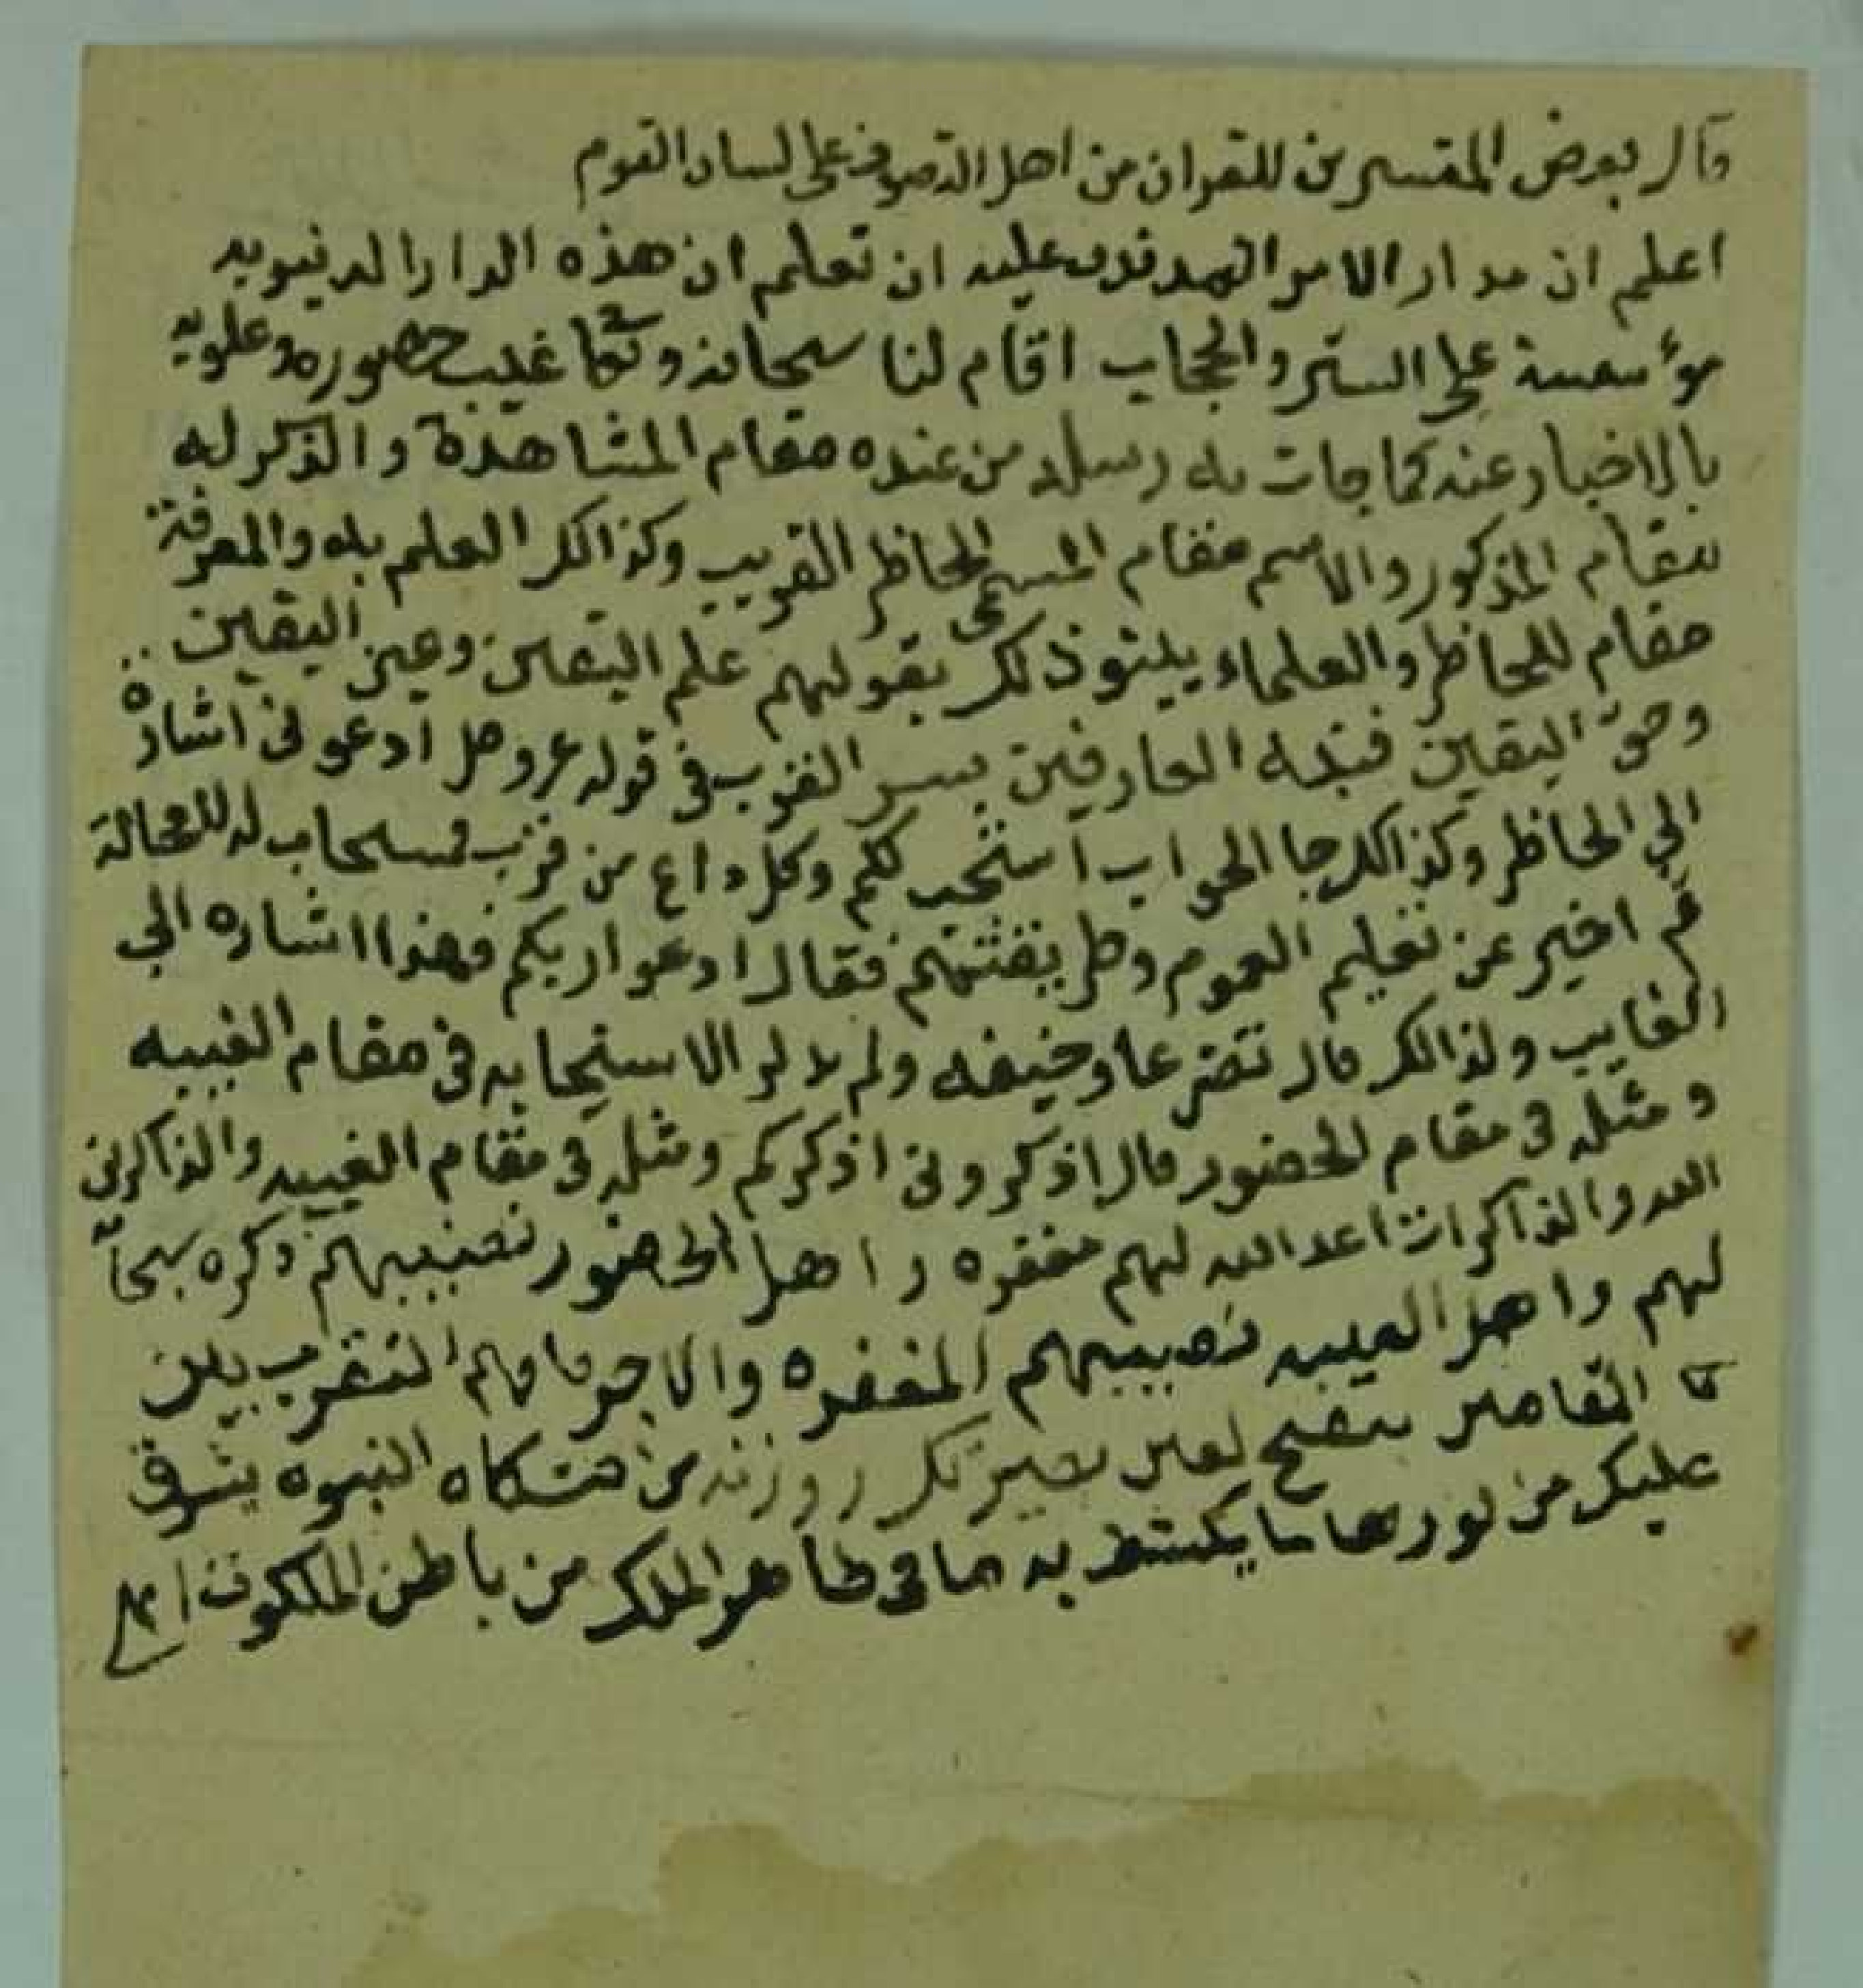 قال بعض المفسرين للقران من اهل التصوف على لسان القوم
اعلم ان مدار الامر عليه ان تعلم ان هذه الدار الدنيويه
مؤسسة على الستر والحجاب اقام لنا سبحانه وتعا غيب حضوره وعلويه
بالاخبار عنه كما جات به رسله من عنده مقام المشاهدة والذكر له
بمقام المذكور والاسم مقام المسمى الحاظر القريب وكذالك العلم به والمعرفة
مقام للحاظر والعلماء ذلك بقولهم علم اليقين وعين اليقين
وحق اليقين العارفين بسر القرب في قوله عز وجل ادعونى اشارة
الي الحاظر وكذالك جا الجواب استجب لكم وكل داع من قرب فمستجاب له لا محالة
ثم اخبر عن تعليم العموم وطريقتهم فقال ادعوا ربكم فهذا اشاره الي
الغايب ولذالك قال تضرعا وخيفه ولم الاستجابه في مقام الغيبه
ومثله في مقام الحضور قال اذكرونى اذكركم ومثله في مقام الغيبه والذاكرين
الله والذاكرات اعد الله لهم مغفره واهل الحضور نصيبهم ذكره سبحا
لهم واهل الغيبه نصيبهم المغفره والاجر فافهم الفرق بين
المقامين ينفتح لعين بصيرتك روزنه من مشكاه النبوه يشرق
عليك من نورها ما يكشف به ما في ظاهر الملك من باطن الملكوت اهـ